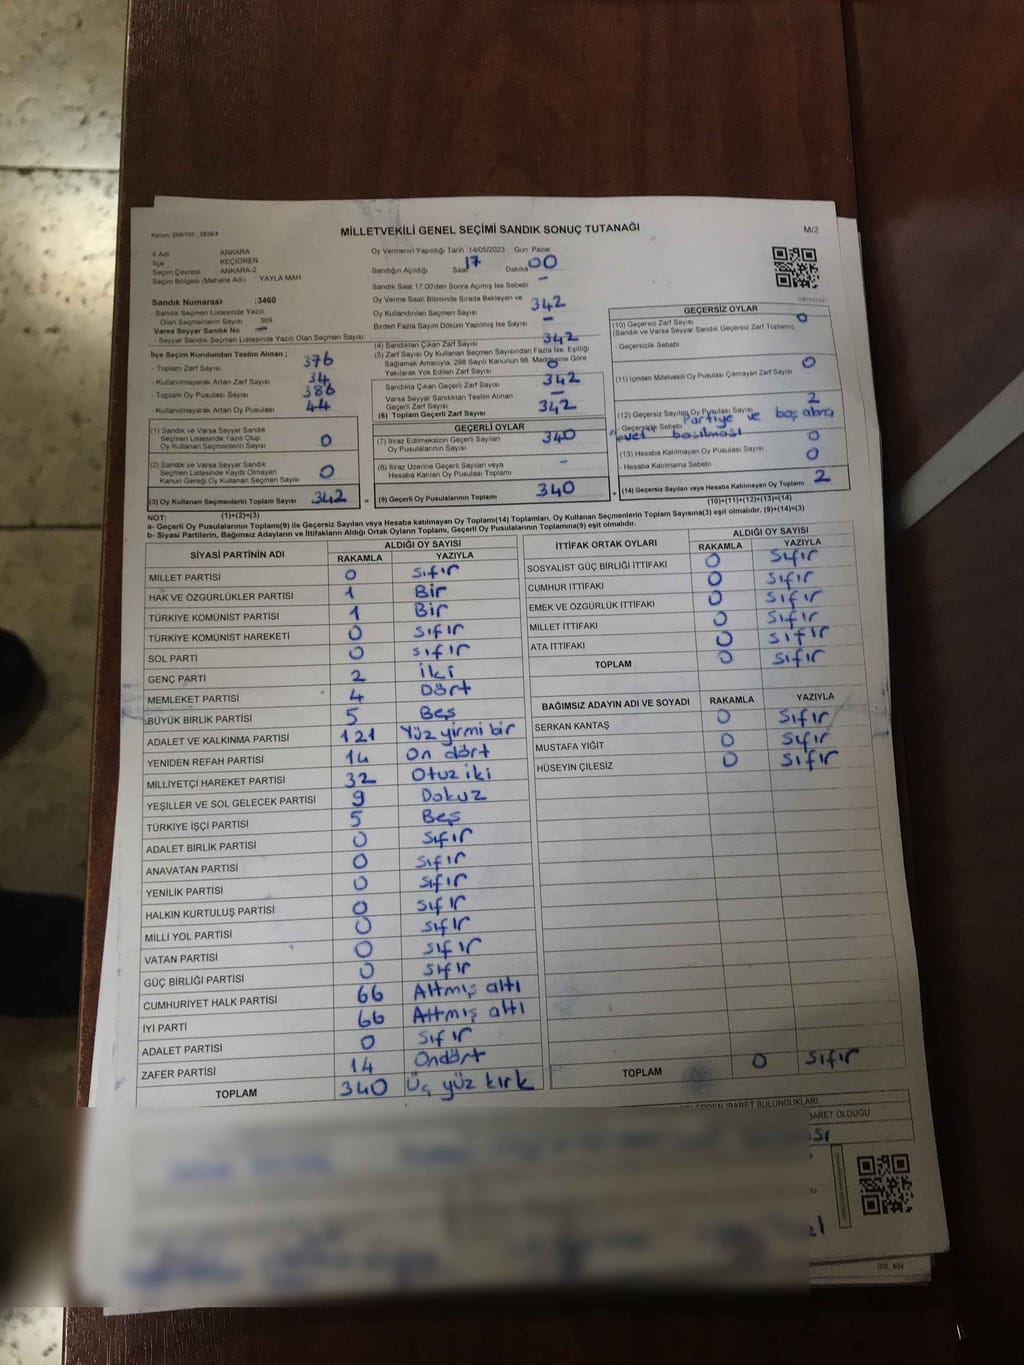 MİLLETVEKİLİ GENEL SEÇİMİ SANDIK SONUÇ TUTANAĞI
M/2
İl Adı ANKARA
İlçe KEÇİÖREN
Seçim Çevresi ANKARA-2
Seçim Bölgesi (Mahalle Adı) YAYLA MAH.
Sandık Numarası :3460
- Sandık Seçmen Listesinde Yazılı
Olan Seçmenlerin Sayısı 369
Varsa Seyyar Sandık No –
- Seyyar Sandık Seçmen Listesinde Yazılı Olan Seçmen Sayısı:
Oy Vermenin Yapıldığı Tarih :14/05/2023 Gün Pazar
Sandığın Açıldığı Saat 17 Dakika 00
Sandık Saat 17:00'den Sonra Açılmış İse Sebebi –
Oy Verme Saati Bitiminde Sırada Bekleyen ve
Oy Kullandırılan Seçmen Sayısı 342
Birden Fazla Sayım Döküm Yapılmış İse Sayısı –
İlçe Seçim Kurulundan Teslim Alınan ;
- Toplam Zarf Sayısı 376
- Kullanılmayarak Artan Zarf Sayısı 34
- Toplam Oy Pusulası Sayısı 386
- Kullanılmayarak Artan Oy Pusulası 44
(1) Sandık ve Varsa Seyyar Sandık
Seçmen Listesinde Yazılı Olup
Oy Kullanan Seçmenlerin Sayısı 0
(2) Sandık ve Varsa Seyyar Sandık
Seçmen Listesinde Kayıtlı Olmayan
Kanun Gereği Oy Kullanan Seçmen Sayısı 0
(3) Oy Kullanan Seçmenlerin Toplam Sayısı 342
(1)+(2)=(3)
(4) Sandıktan Çıkan Zarf Sayısı 342
(5) Zarf Sayısı Oy Kullanan Seçmen Sayısından Fazla İse, Eşitliği
Sağlamak Amacıyla, 298 Sayılı Kanunun 98. Maddesine Göre
Yakılarak Yok Edilen Zarf Sayısı 0
Sandıkta Çıkan Geçerli Zarf Sayısı 342
Varsa Seyyar Sandıktan Teslim Alınan
Geçerli Zarf Sayısı –
(6) Toplam Geçerli Zarf Sayısı 342
GEÇERLİ OYLAR
(7) İtiraz Edilmeksizin Geçerli Sayılan
Oy Pusulası Sayısı 340
(8) İtiraz Üzerine Geçerli Sayılan veya
Hesaba Katılan Oy Pusulası Toplamı –
(9) Geçerli Oy Pusulalarının Toplamı 340
GEÇERSİZ OYLAR
(10) Geçersiz Zarf Sayısı 0
(Sandık ve Varsa Seyyar Sandık Geçersiz Zarf Toplamı)
- Geçersizlik Sebebi
(11) İçinden Milletvekili Oy Pusulası Çıkmayan Zarf Sayısı 0
(12) Geçersiz Sayılan Oy Pusulası Sayısı 2
- Geçersizlik Sebebi Partiye ve boş alana
evet basılması
(13) Hesaba Katılmayan Oy Pusulası Sayısı 0
- Hesaba Katılmama Sebebi 0
(14) Geçersiz Sayılan veya Hesaba Katılmayan Oy Toplamı 2
(10)+(11)+(12)+(13)=(14)
NOT:
a- Geçerli Oy Pusulalarının Toplamı(9) ile Geçersiz Sayılan veya Hesaba katılmayan Oy Toplamı(14) Toplamları, Oy Kullanan Seçmenlerin Toplam Sayısına(3) eşit olmalıdır. (9)+(14)=(3)
b- Siyasi Partilerin, Bağımsız Adayların ve İttifakların Aldığı Ortak Oyların Toplamı, Geçerli Oy Pusulalarının Toplamına(9) eşit olmalıdır.
SİYASİ PARTİNİN ADI ALDIĞI OY SAYISI
RAKAMLA YAZIYLA
MİLLET PARTİSİ 0 Sıfır
HAK VE ÖZGÜRLÜKLER PARTİSİ 1 Bir
TÜRKİYE KOMÜNİST PARTİSİ 1 Bir
TÜRKİYE KOMÜNİST HAREKETİ 0 Sıfır
SOL PARTİ 0 Sıfır
GENÇ PARTİ 2 İki
MEMLEKET PARTİSİ 4 Dört
BÜYÜK BİRLİK PARTİSİ 5 Beş
ADALET VE KALKINMA PARTİSİ 121 Yüz yirmi bir
YENİDEN REFAH PARTİSİ 14 On dört
MİLLİYETÇİ HAREKET PARTİSİ 32 Otuz iki
YEŞİLLER VE SOL GELECEK PARTİSİ 9 Dokuz
TÜRKİYE İŞÇİ PARTİSİ 5 Beş
ADALET BİRLİK PARTİSİ 0 Sıfır
ANAVATAN PARTİSİ 0 Sıfır
YENİLİK PARTİSİ 0 Sıfır
HALKIN KURTULUŞ PARTİSİ 0 Sıfır
MİLLİ YOL PARTİSİ 0 Sıfır
VATAN PARTİSİ 0 Sıfır
GÜÇ BİRLİĞİ PARTİSİ 0 Sıfır
CUMHURİYET HALK PARTİSİ 66 Altmış altı
İYİ PARTİ 66 Altmış altı
ADALET PARTİSİ 0 Sıfır
ZAFER PARTİSİ 14 Ondört
TOPLAM 340 Üç yüz kırk
İTTİFAK ORTAK OYLARI ALDIĞI OY SAYISI
RAKAMLA YAZIYLA
SOSYALİST GÜÇ BİRLİĞİ İTTİFAKI 0 Sıfır
CUMHUR İTTİFAKI 0 Sıfır
EMEK VE ÖZGÜRLÜK İTTİFAKI 0 Sıfır
MİLLET İTTİFAKI 0 Sıfır
ATA İTTİFAKI 0 Sıfır
TOPLAM 0 Sıfır
BAĞIMSIZ ADAYIN ADI VE SOYADI RAKAMLA YAZIYLA
SERKAN KANTAŞ 0 Sıfır
MUSTAFA YİĞİT 0 Sıfır
HÜSEYİN ÇİLESİZ 0 Sıfır
TOPLAM 0 Sıfır
İBARET BULUNDUKLARI
BARET OLDUĞU